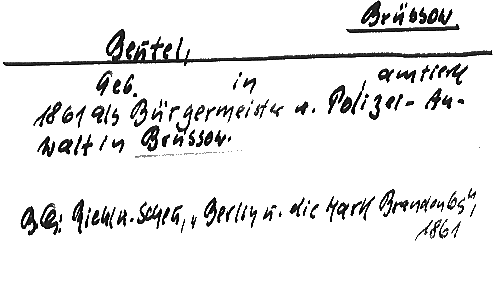 Brüssow
Beutel,
Geb. in , amtierte
1861 als Bürgermeister u. Polizei-An-
walt in Brüssow.
BQ: Riehl u. Scheu, „Berlin u. die Mark Brandenbg",
1861